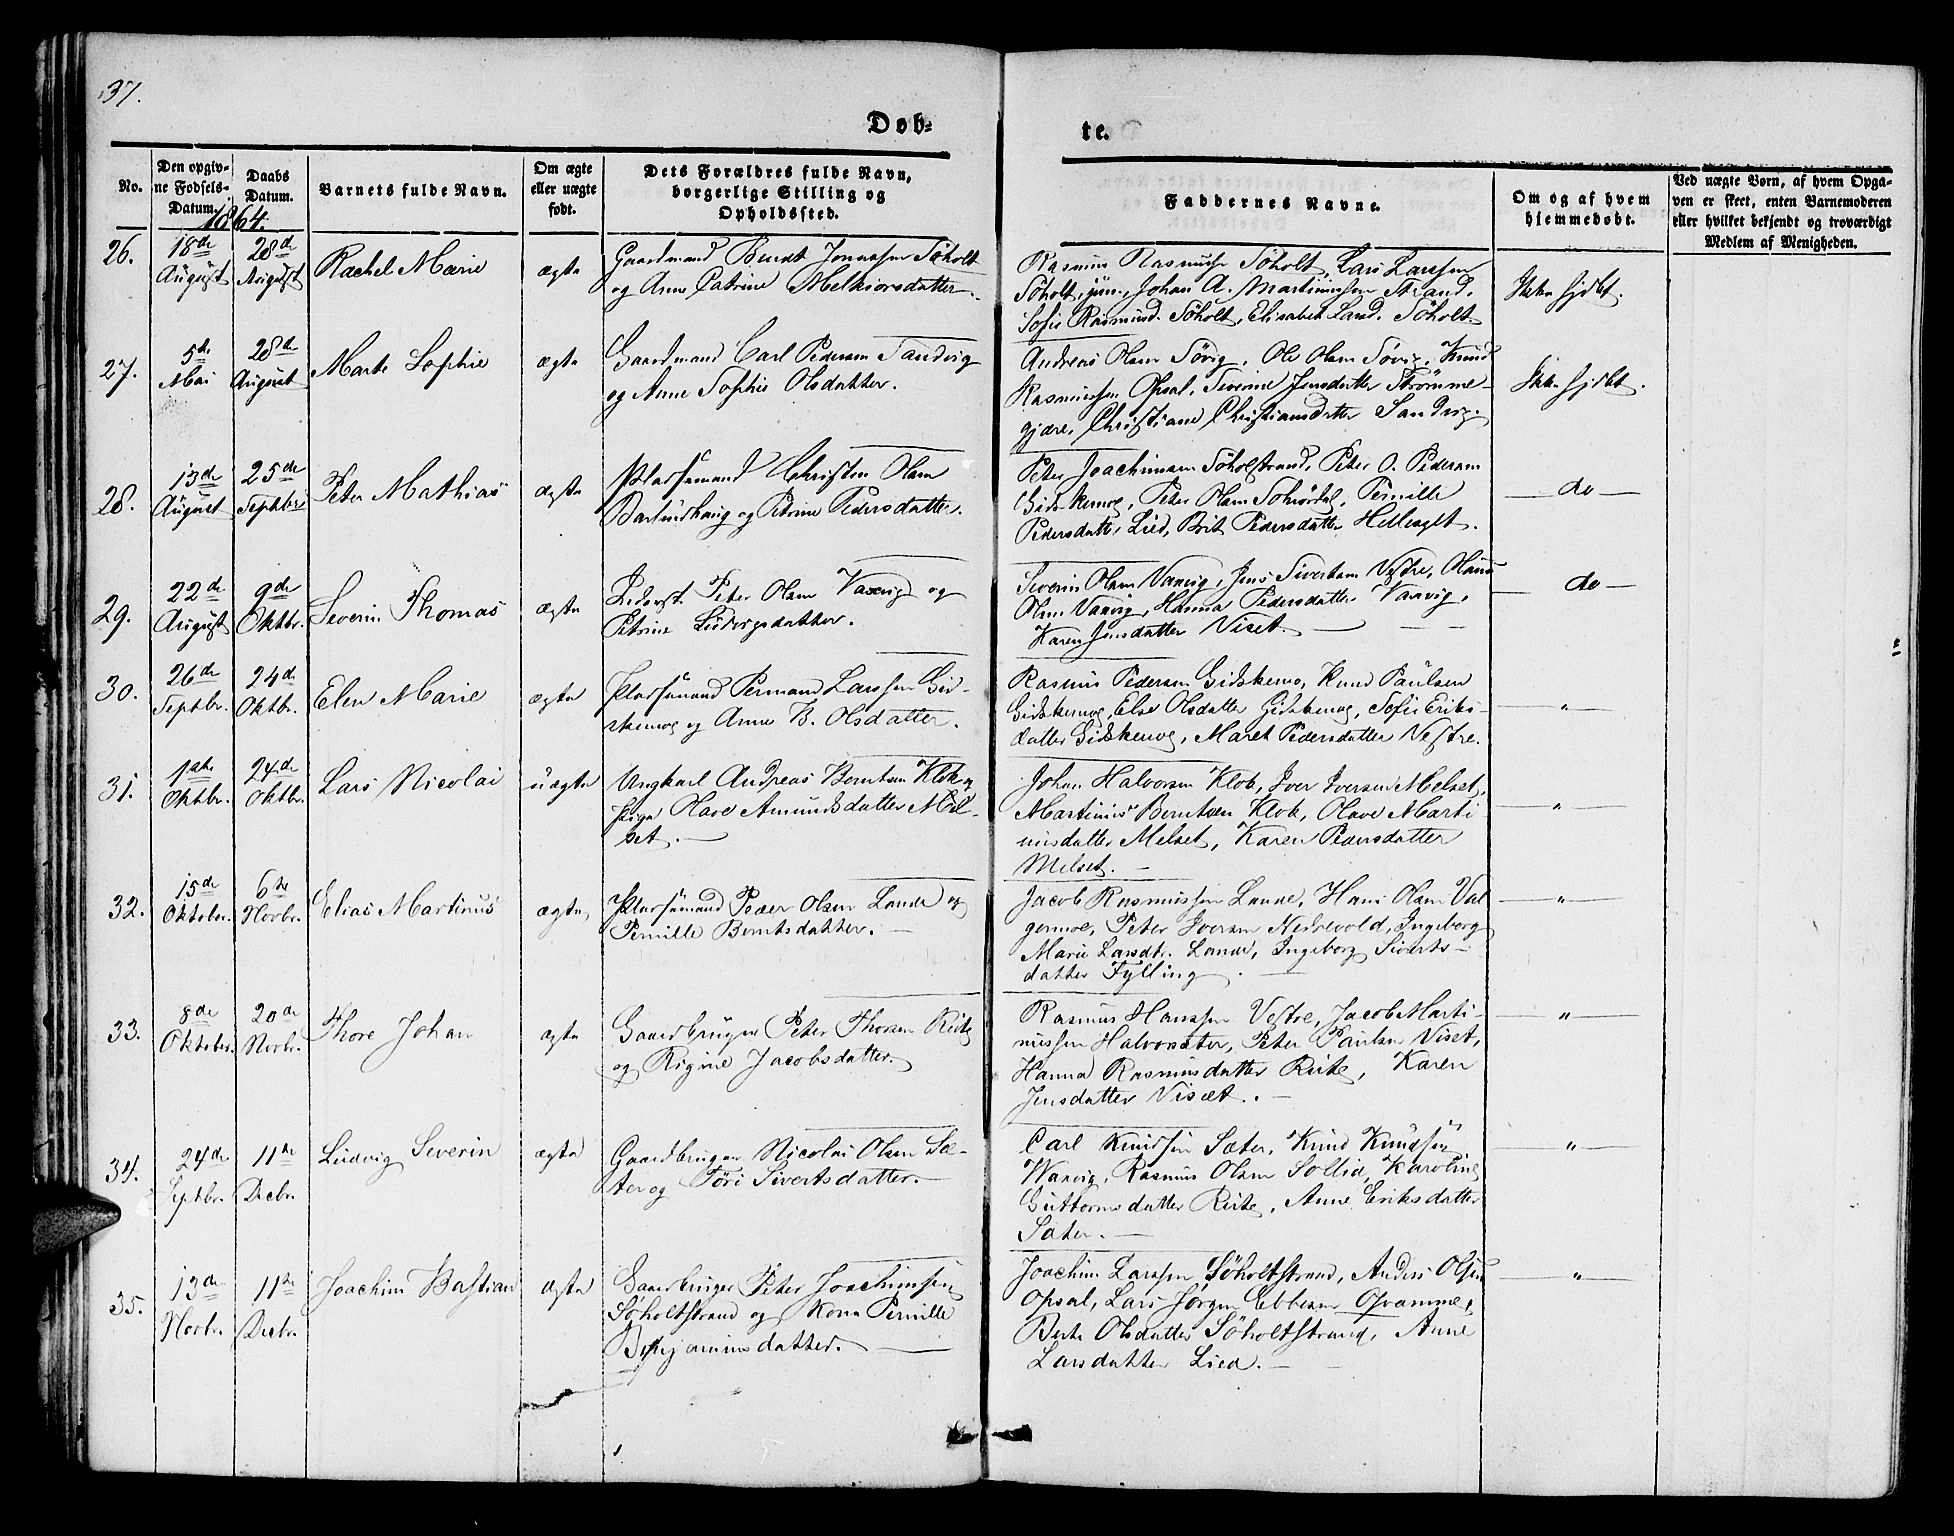 37.
Døb-
te.
No.
Den opgiv-
ne Fødsels-
Datum.
Daabs
Datum.
Barnets fulde Navn.
Om ægte
eller uægte
født.
Dets Forældres fulde Navn,
borgerlige Stilling og
Opholdssted.
Faddernes Navne.
Om og af hvem
hjemmedøbt.
Ved uægte Børn, af hvem Opga-
ven er skeet, enten Barnemoderen
eller hvilket bekjendt og troværdigt
Medlem af Menigheden.
1864.
26.
18de
August
28de
August
Rachel Marie
ægte
Gaardmand Berndt Jonassen Søholt
og Anne Patrine Melkiorsdatter.
Rasmus Rasmussen Søholt, Lars Larssen
Søholt, jun., Johan A. Martinussen Strand,
Sofie Rasmusd. Søholt, Elisabet Land. Søholt
Ikke hjdbt.
27.
5te
Mai
28de
August
Marte Sophie
ægte
Gaardmand Carl Pedersen Sandvig
og Anne Sophie Olsdatter.
Andreas Olsen Søvig, Ole Olsen Søvig, Knud
Rasmussen Opsal, Severine Jensdatter Strømme-
gjære, Christiane Christiansdatter Sandvig.
Ikke hjdbt.
28.
13de
August
25de
Septbr
Peter Mathias
ægte
Pladsemand Christen Olsen
og Petrine Pedersdatter.
Peter Joachimsen Søholtstrand, Peter O. Pedersen
Gidskemog, Peter Olsen Pernille
Pedersdatter Lied, Brit Pedersdatter
do
29.
22de
August
9de
Oktbr.
Severin Thomas
ægte
Peter Olsen Vaxvig og
Petrine Ludvigsdatter.
Severin Olsen Vaxvig, Jens Sivertsen Vestre, Olaus
Olsen Vaxvig, Hanna Pedersdatter Vaxvig,
Karen Jensdatter Viset.
do
30.
26de
Septbr.
24de
Oktbr.
Elen Marie
ægte
Pladsemand Permand Larssen Gid-
skemog og Anne B. Olsdatter.
Rasmus Pedersen Gidskemo, Knud Paulsen
Gidskemog, Else Olsdatter Gidskemog, Sofie Eriks-
datter Gidskemog, Maret Pedersdatter Vestre.
"
31.
1ste
Oktbr.
24de
Oktbr.
Lars Nicolai
uægte
Ungkarl Andreas Berntsen Klok og
Pige Olave Amundsdatter Mel-
set.
Johan Halvorsen Klok, Iver Iversen Melset,
Martinus Berntsen Klok, Olave Marti
nusdatter Melset, Karen Pedersdatter
Melset.
"
32.
15de
Oktober.
6te
Novbr.
Elias Martinus
ægte
Pladsemand Peder Olsen Lande og
Pernille Berntsdatter.
Jacob Rasmussen Lande, Hans Olsen Val
germoe, Peter Iversen Nedrevold, Ingeborg
Marie Larsdtr. Lande, Ingeborg Siverts-
datter Fylling.
"
33.
8de
Oktober.
20de
Novbr.
Thore Johan
ægte
Gaardbruger Peter Thorsen Rite
og Rigine Jacobsdatter.
Rasmus Hanssen Vestre, Jacob Marti-
nussen Halvorsæter, Peter Paulsen Viset,
Hanna Rasmusdatter Rite, Karen
Jensdatter Viset.
"
34.
24de
Septbr.
11te
Decbr.
Ludvig Severin
ægte
Gaardbruger Nicolai Olsen Sæ-
ter og Tøri Sivertsdatter.
Carl Knudsen Sæter, Knud Knudsen
Waxvig, Rasmus Olsen Sollid, Karoline
Guttormsdatter Rite, Anne Eriksdatter
Sæter.
"
35.
13de
Novbr.
11te
Decbr.
Joachim Bastian
ægte
Gaardbruger Peter Joachimsen
Søholtstrand og Kone Pernille
Benjaminsdatter.
Joachim Larssen Søholtstrand, Anders Olsen
Opsal, Lars Jørgen Ebbesen
Berte Olsdatter Søholtstrand, Anne
Larsdatter Lied.
"